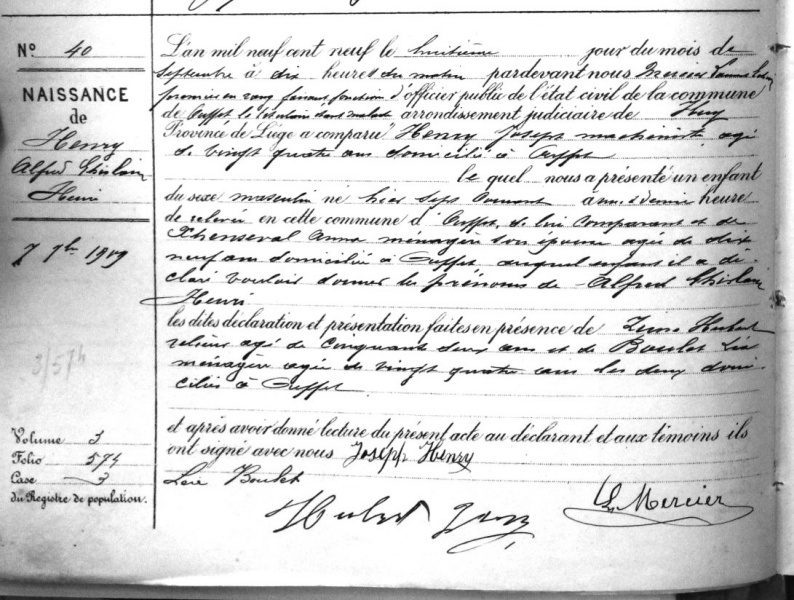 N° 40
NAISSANCE
de
Henry
Alfred Ghislain
Henri
7 7bre 1909
3/574
Volume 3
Folio 574
Case 3
du Registre de population.
L'an mil neuf cent neuf le huitième jour du mois de
Septembre à dix heures du matin pardevant nous Mercier
premier en rang faisant fonction d'officier public de l'état civil de la commune
de Ouffet le titulaire étant malade arrondissement judiciaire de Huy
Province de Liège a comparu Henry Joseph machiniste, agé
de vingt quatre ans domicilié à Ouffet
le quel nous a présenté un enfant
du sexe masculin né hier sept courant à une et demie heure
de relevée en cette commune d'Ouffet, de lui comparant et de
Anna ménagère son épouse agée de dix
neuf ans domiciliée à Ouffet, auquel enfant il a dé-
claré vouloir donner les prénoms de Alfred Ghislain
Henri
les dites déclaration et présentation faites en présence de Hubert
agé de cinquante deux ans et de Boulet
ménagère agée de vingt quatre ans les deux domi-
ciliés à Ouffet
et après avoir donné lecture du présent acte au déclarant et aux témoins ils
ont signé avec nous Joseph Henry
Boulet
Hubert
L. Mercier